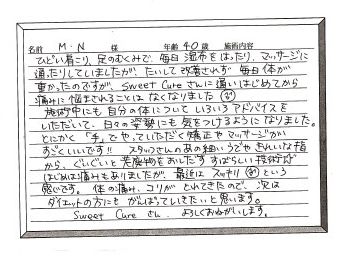 名前 M・N 様 年齢 40 歳 施術内容
ひどい肩こり、足のむくみで、毎日湿布をはったり、マッサージに
通ったりしていましたが、たいして改善されず毎日体が
重かったのですが、Sweet Cureさんに通いはじめてから
痛みに悩まされることはなくなりました(笑)
施術中にも自分の体について いろいろアドバイスを
いただいて、日々の姿勢にも気をつけるようになりました。
とにかく「手」でやっていただく矯正やマッサージが
すごくいいです!! スタッフさんのあの細いうでやきれいな指
から、ぐいぐいと老廃物をおいだすすばらしい技術が
はじめは痛みもありましたが、最近はスッキリ(笑)という
感じです。体の痛み、コリがとれてきたので、次は
ダイエットの方にもがんばっていきたいと思います。
Sweet Cureさん よろしくおねがいします。